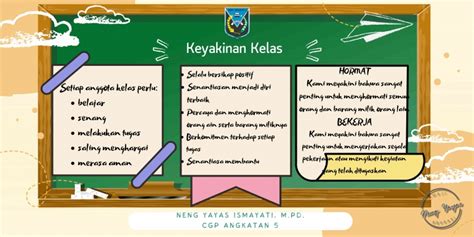 Keyakinan Kelas
Setiap anggota kelas perlu:
• belajar
• senang
• melakukan tugas
• saling menghargai
• merasa aman
• Selalu bersikap positif
• Senantiasan menjadi diri
terbaik
• Percaya dan menghormati
orang ain serta barang miliknya
• Berkomitmen terhadap setiap
tugas
• Senantiasa membantu
HORMAT
Kami meyakini bahwa sangat
penting untuk menghormati semua
orang dan barang milik orang lain.
BEKERJA
Kami meyakini bahwa sangat
penting untuk mengerjakan segala
pekerjaan atau mengikuti kegiatan
yang telah ditugaskan
NENG YAYAS ISMAYATI, M.PD.
CGP ANGKATAN 5